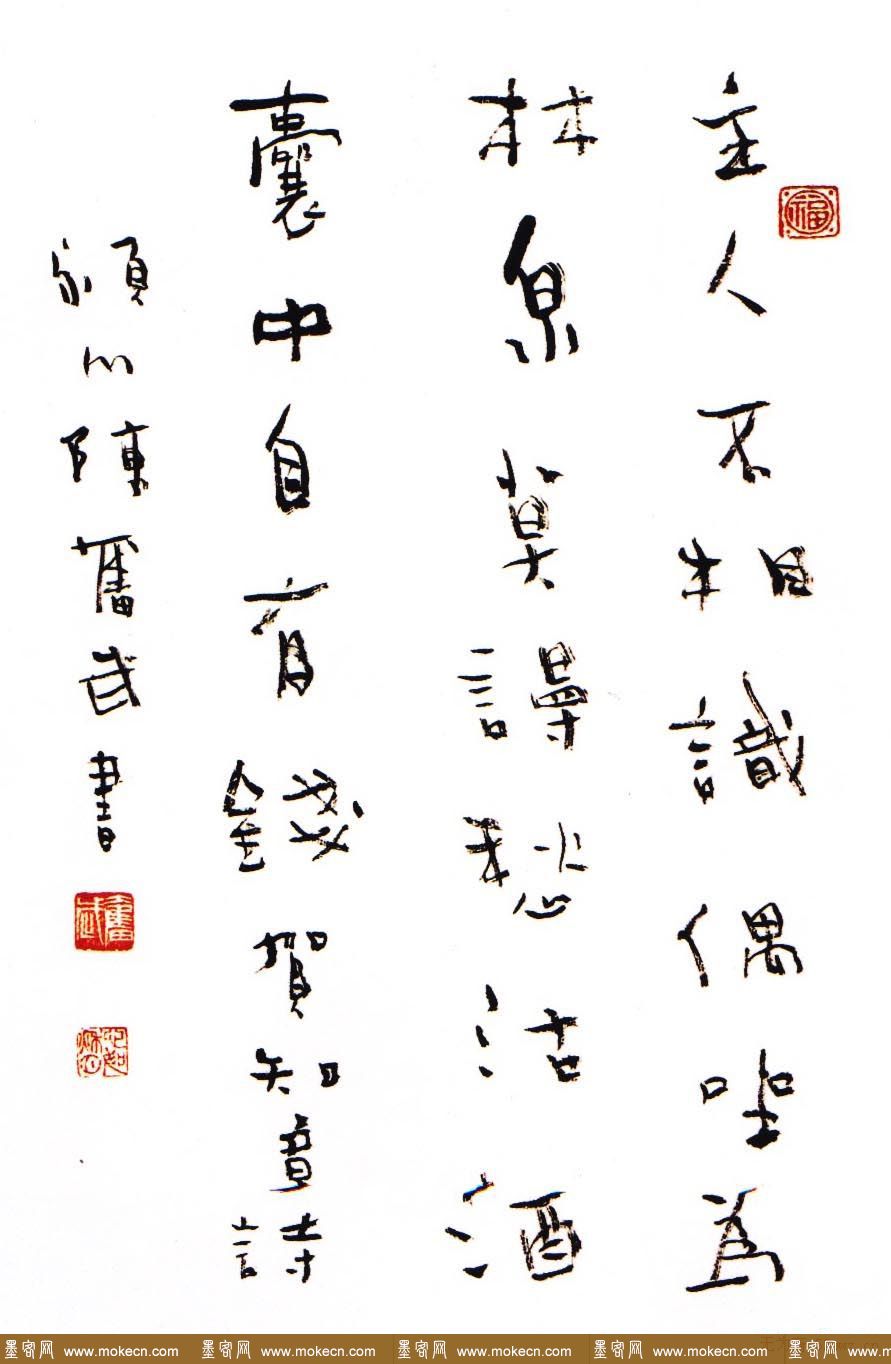 福
主人不相識偶坐為
林泉莫謾愁沽酒
囊中自有錢賀知章詩
潁川陳奮武書
奮武
墨客网 www.mokecn.com 墨客网 www.mokecn.com 墨客网 www.mokecn.com 墨客网 www.mokecn.com 墨客网 www.m